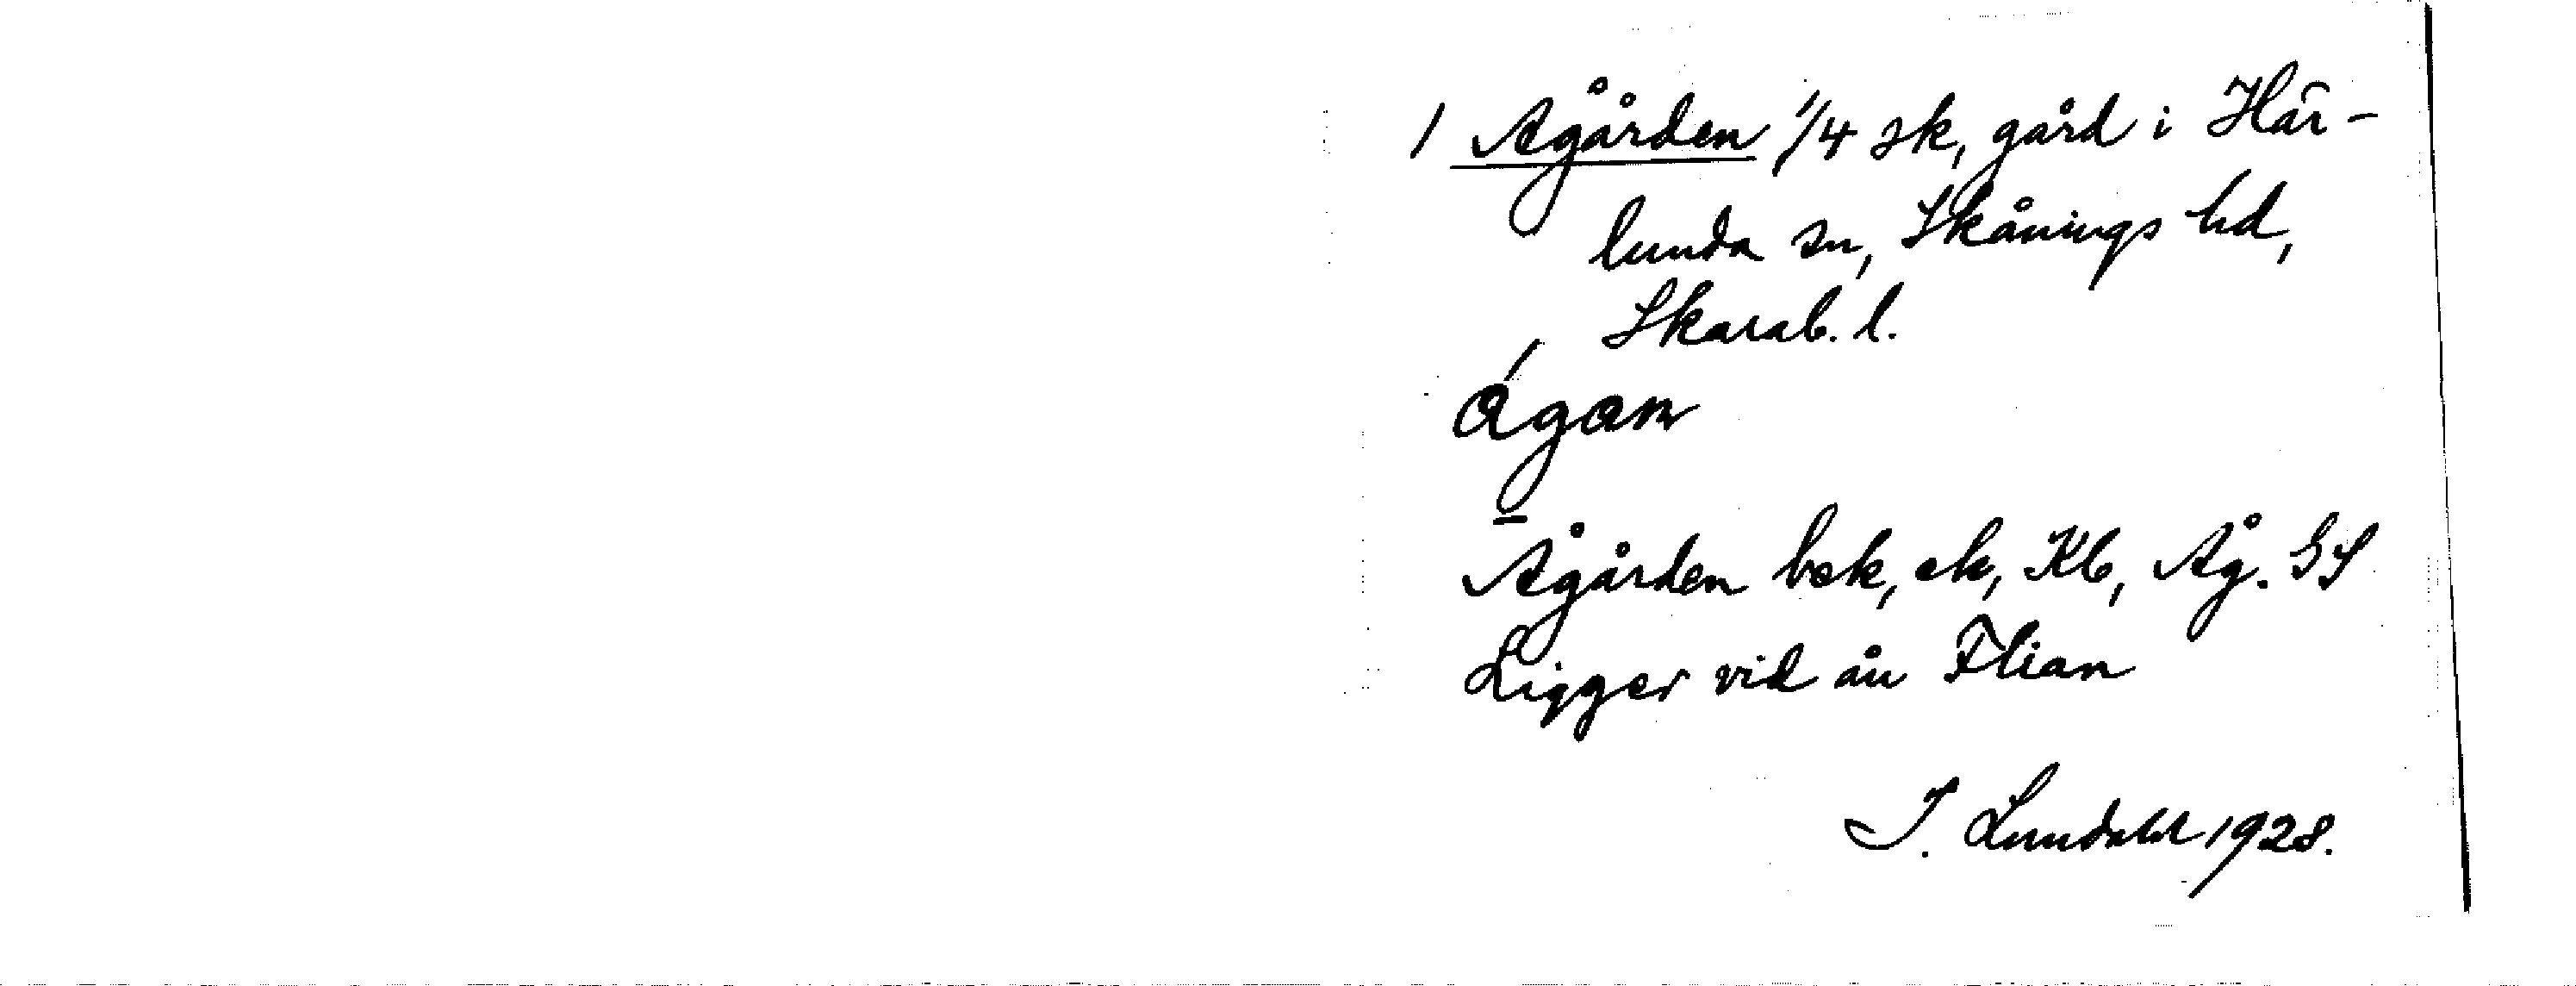 1 Ågården 1/4 sk, gård i Här-
lunda sn, Skånings hd,
Skarab. l.
ágan
Ågården bok, ek, Kb, Åg. GS
Ligger vid ån Flian
I. Lundahl 1928.